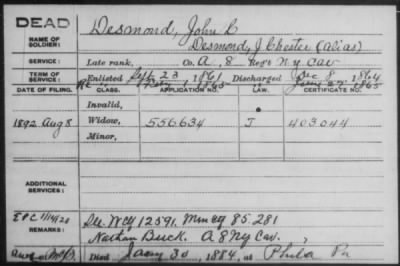 DEAD
NAME OF SOLDIER: Desmond, John C
Desmond, J. Chester (alias)
SERVICE: Late rank, Co. A, 8 Reg't N.Y. Cav
TERM OF SERVICE: Enlisted Sept 23, 1861 Discharged Dec 8, 1864
1865 June 27, 1865
DATE OF FILING. CLASS. APPLICATION NO. LAW. CERTIFICATE NO.
Invalid,
1892 Aug 8 Widow, 556.634 J 403.044
Minor,
ADDITIONAL SERVICES:
REMARKS: See WCy 12591. 85.281
Nathan Buck. A 8 NY Cav.
Died Jany 30, 1884, at Phila Pa